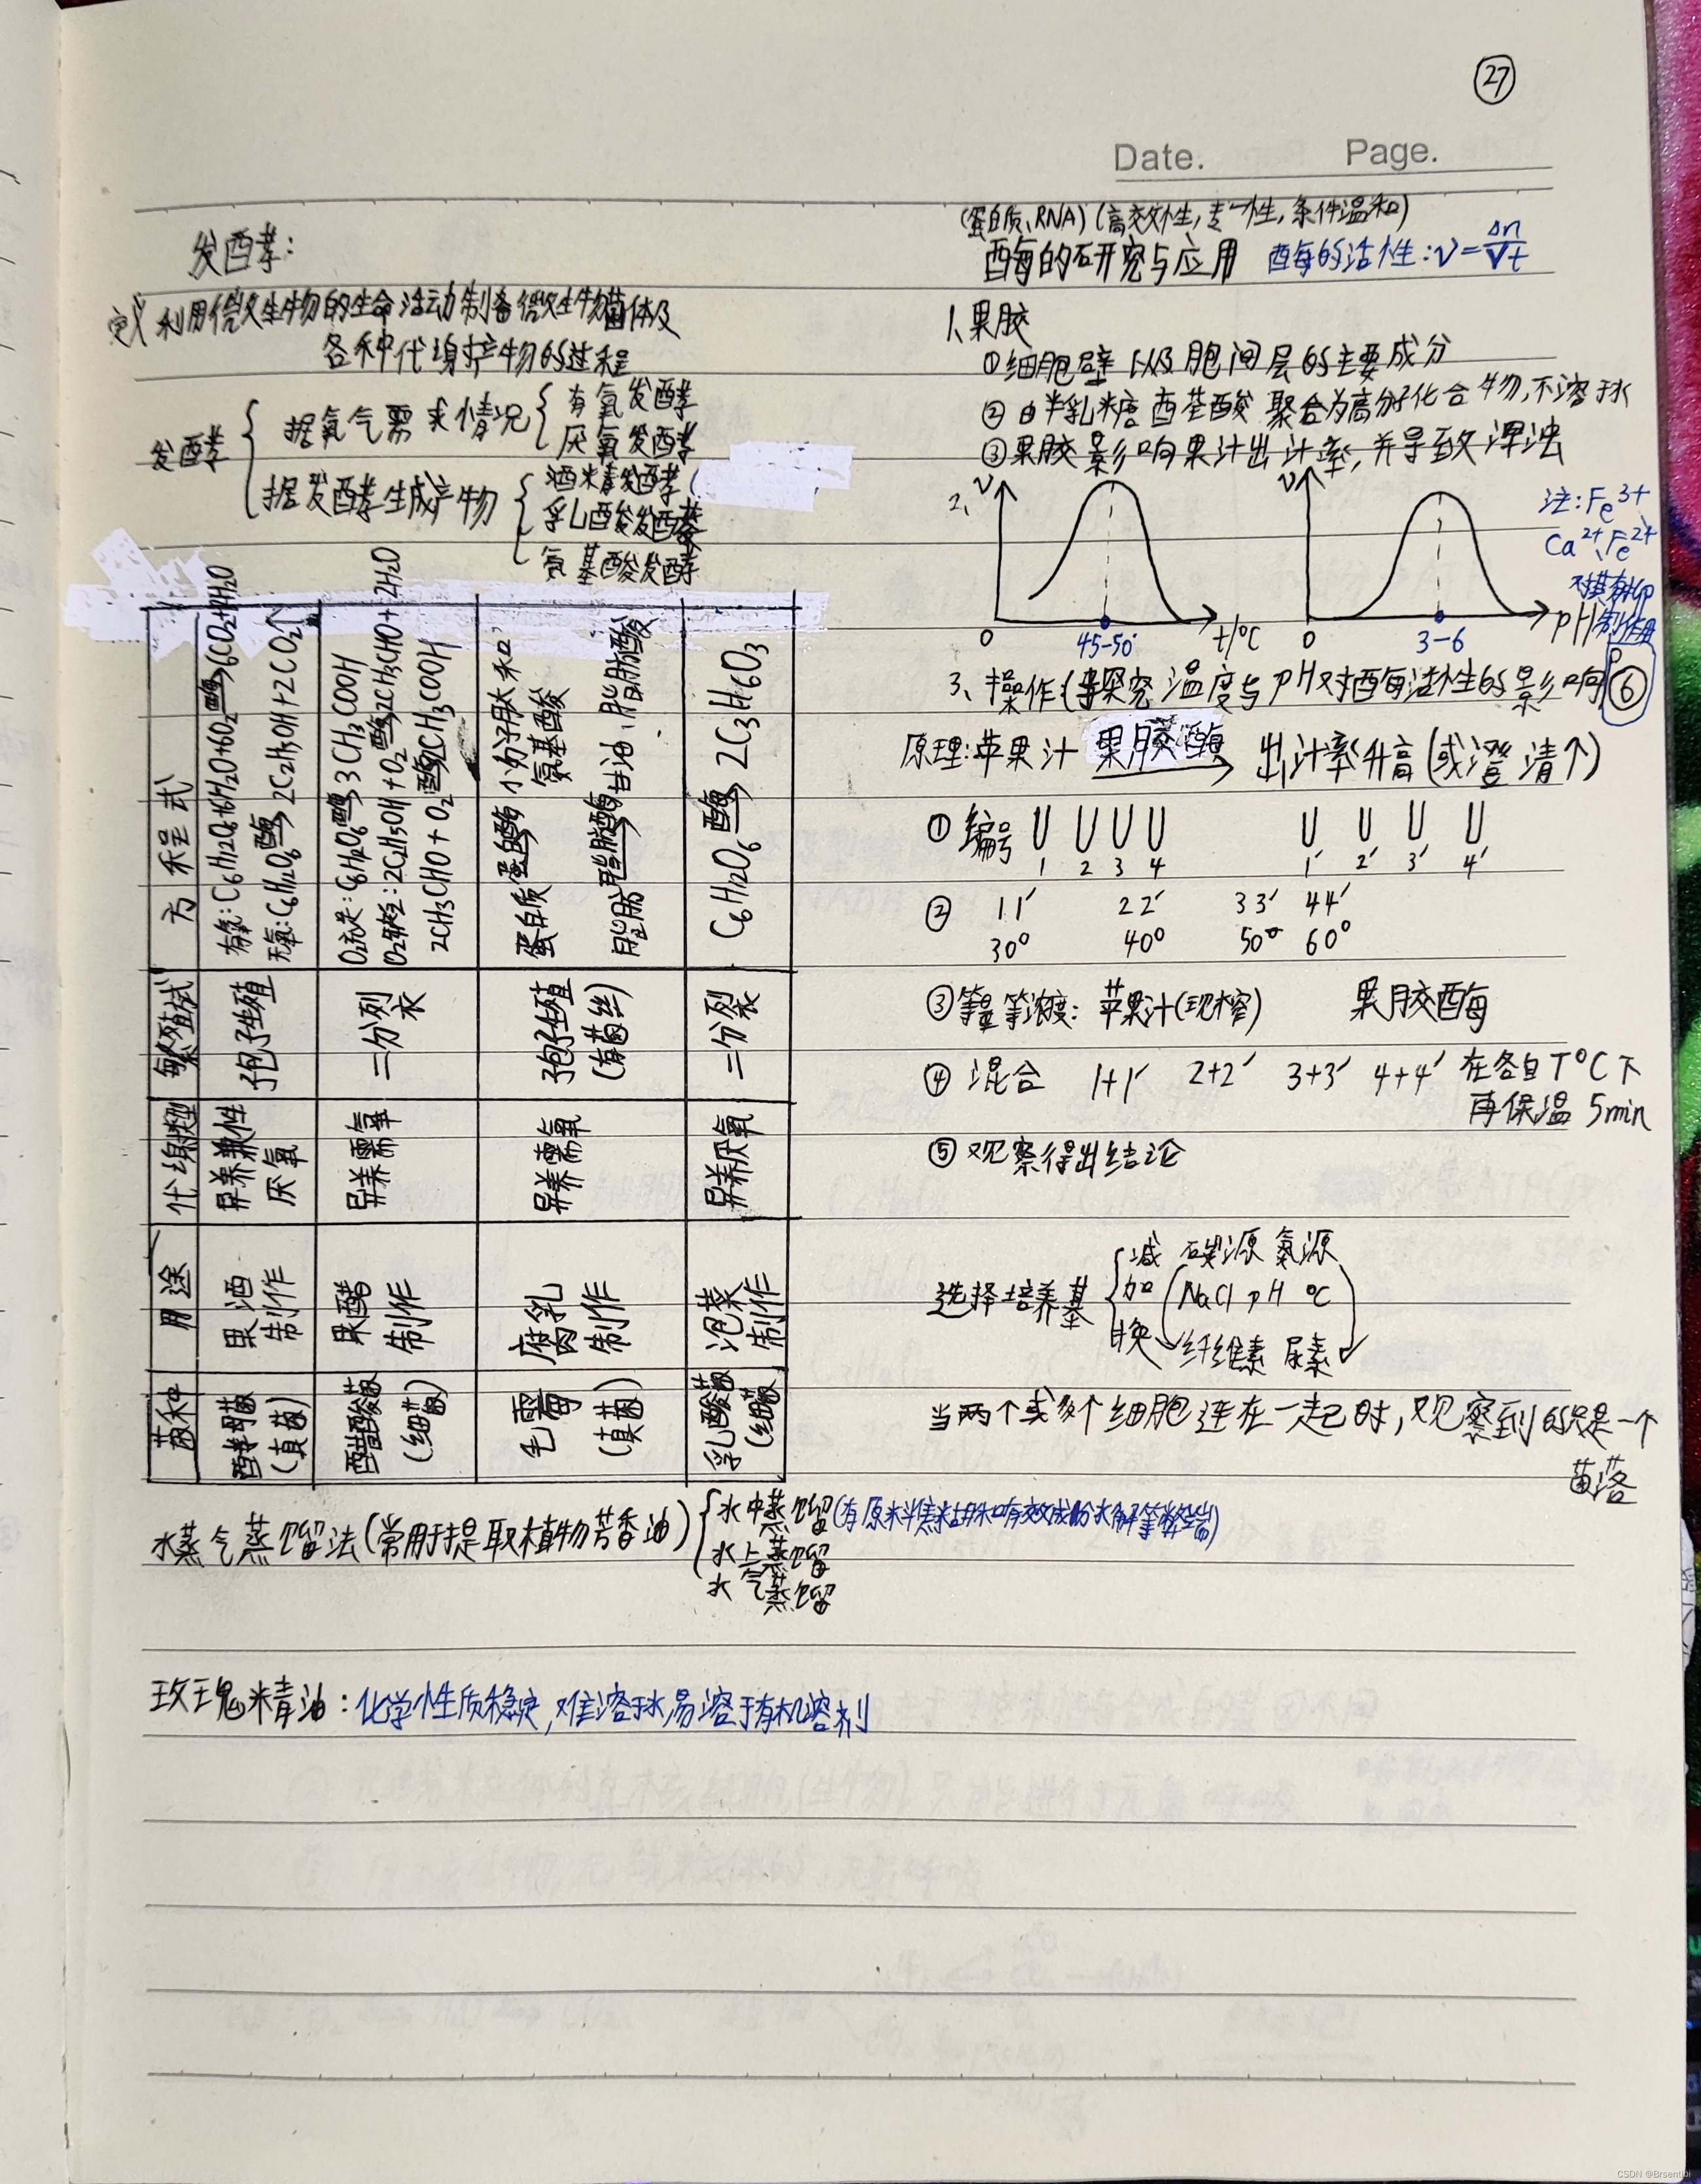 27
Date. Page.
发酵：
定义 利用微生物的生命活动制备微生物菌体及
各种代谢产物的过程
发酵
据氧气需求情况
有氧发酵
厌氧发酵
据发酵生成产物
酒精发酵(
乳酸发酵
氨基酸发酵
菌种 用途 代谢类型 繁殖方式 方程式
酵母菌(真菌) 果酒制作 异养兼性厌氧 孢子生殖 有氧：C6H12O6+6H2O+6O2 酶→ 6CO2+12H2O
无氧：C6H12O6 酶→ 2C2H5OH+2CO2↑
醋酸菌(细菌) 果醋制作 异养需氧 二分裂 O2充足：C6H12O6 酶→ 3CH3COOH
O2缺乏：2C2H5OH+O2 酶→ 2CH3CHO+2H2O
2CH3CHO+O2 酶→ 2CH3COOH
毛霉(真菌) 腐乳制作 异养需氧 孢子生殖(有菌丝) 蛋白质 蛋白酶→ 小分子肽和氨基酸
脂肪 脂肪酶→ 甘油、脂肪酸
乳酸菌(细菌) 泡菜制作 异养厌氧 二分裂 C6H12O6 酶→ 2C3H6O3
水蒸气蒸馏法(常用于提取植物芳香油)
水中蒸馏(有原料焦糊和有效成份水解等弊端)
水上蒸馏
水气蒸馏
玫瑰精油：化学性质稳定，难溶于水，易溶于有机溶剂
(蛋白质、RNA)(高效性，专一性，条件温和)
酶的研究与应用 酶的活性：v=Δn/∇t
1、果胶
①细胞壁以及胞间层的主要成分
②由半乳糖醛酸聚合为高分子化合物，不溶于水
③果胶影响果汁出汁率，并导致浑浊
2、
v 0 45-50° t/°C
v 0 3-6 pH
注：Fe3+、
Ca2+、Fe2+
对其有抑
制作用
3、操作(探究温度与pH对酶活性的影响) P⑥
原理：苹果汁 果胶酶→ 出汁率升高(或澄清↑)
①编号 1 2 3 4 1′ 2′ 3′ 4′
② 11′ 22′ 33′ 44′
30° 40° 50° 60°
③等量等浓度：苹果汁(现榨) 果胶酶
④混合 1+1′ 2+2′ 3+3′ 4+4′ 在各自T°C下
再保温5min
⑤观察得出结论
选择培养基
减 碳源 氮源
加 NaCl pH °C
换 纤维素 尿素
当两个或多个细胞连在一起时，观察到的只是一个
菌落
CSDN @Brsentibi